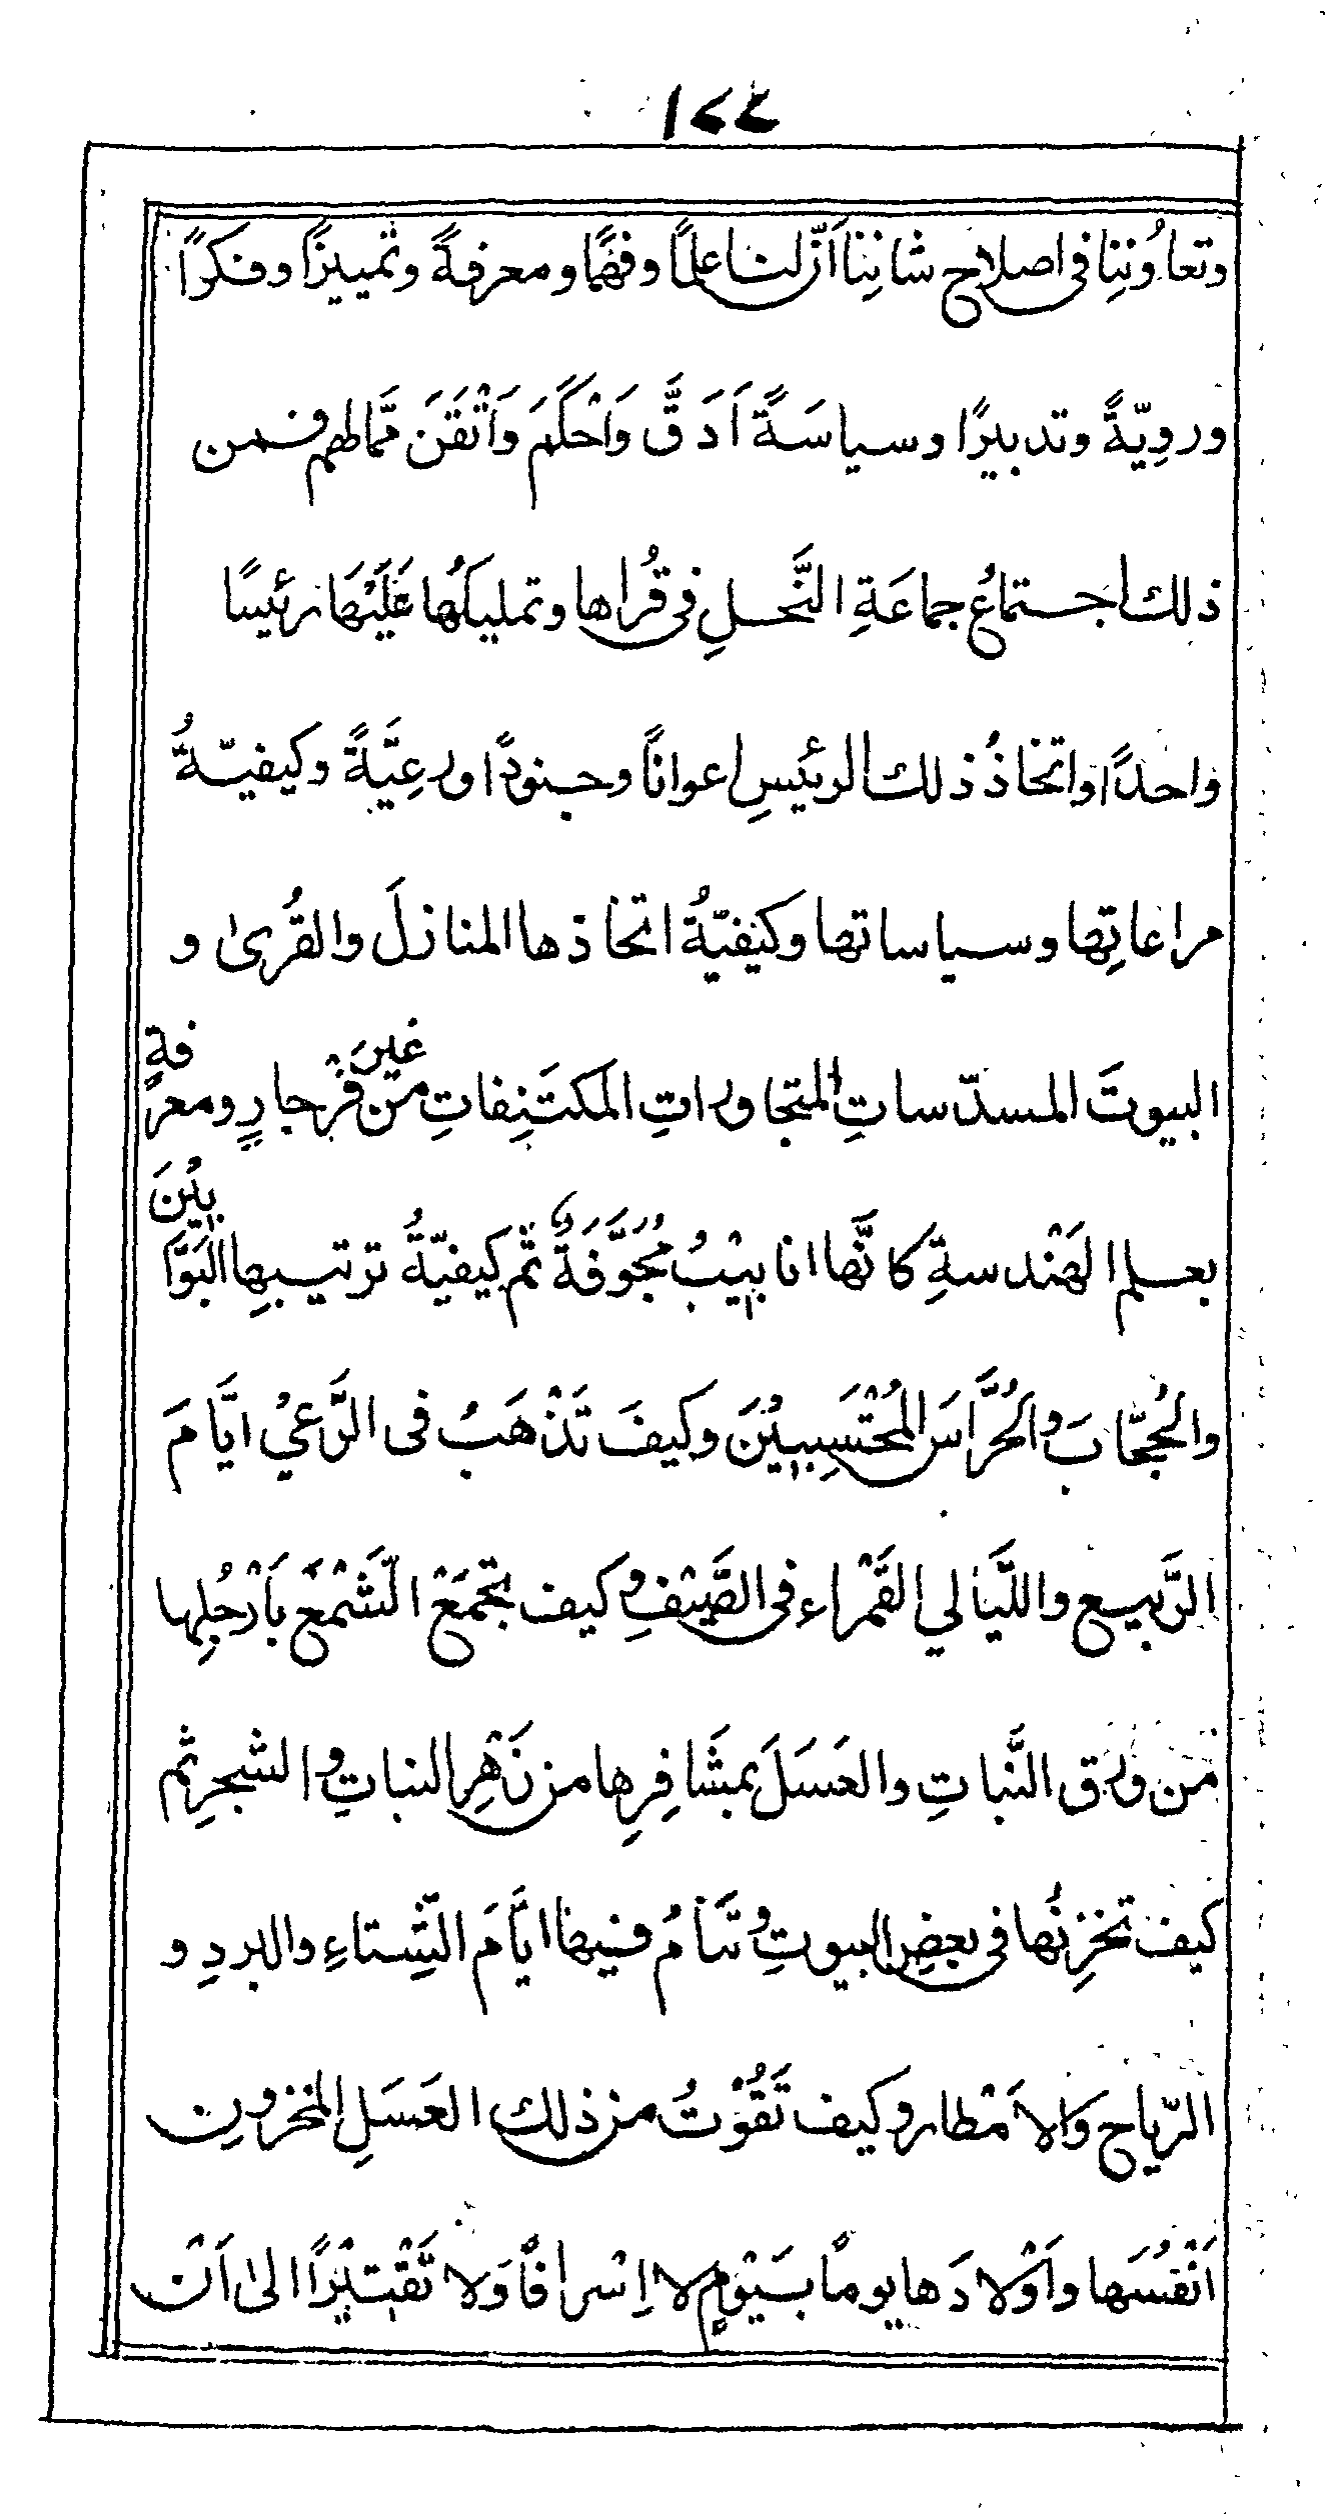 ١٤٤
وتعاوُنِنا فى اصلاح شانِنا اَنّ لنا علمًا وفهمًا ومعرفةً وتمييزًا وفكرًا
ورويّةً وتدبيرًا وسياسَةً اَدَقَّ وَاَحْكَمَ وَاَتْقَنَ مّمالهم فمن
ذلك اجتماعُ جماعَةِ النَّحلِ فى قُراها وتمليكُها عَلَيْهَا رئيسًا
واحدًا واتخاذُ ذلك الرئيسِ اعوانًا وجنودًا ورعِيَّةً وكيفيّةُ
مراعاتِها وسياساتها وكيفيّةُ اتخاذها المنازلَ والقُرىٰ و
البيوتَ المسدّساتِ المتجاوراتِ المكتَنِفاتِ من غيرِ فَرْجارٍ ومعرفةٍ
بعلم الهَنْدسةِ كانَّها انابيْبُ مُجَوَّفَةٌ ثم كيفيّةُ ترتيبِها البَوَّابِيْنَ
والحُجّابَ والحُرَّاسَ المُحْتَسِبِيْنَ وكيفَ تَذْهَبُ فى الرَّعيْ ايَّامَ
الرَّبيع واللَّيَالي القَمْراء فى الصَّيْفِ وكيف تجمَعُ الشَّمْعَ بِاَرْجُلِها
من ورق النَّباتِ والعَسَلَ بمَشَافِرِها من زَهْرِ النباتِ والشجرِ ثم
كيف تخزِنُها فى بعضِ البيوتِ وتَنَامُ فيها ايَّامَ الشِّتاءِ والبردِ و
الرّياح وَالاَمْطار وكيف تَقُوْتُ من ذلك العَسَلِ المخزونِ
اَنْفُسَها واَوْلادَها يومًا بيَوْمٍ لا اِسْرافًا وَلا تَقْتِيْرًا الىٰ اَنْ